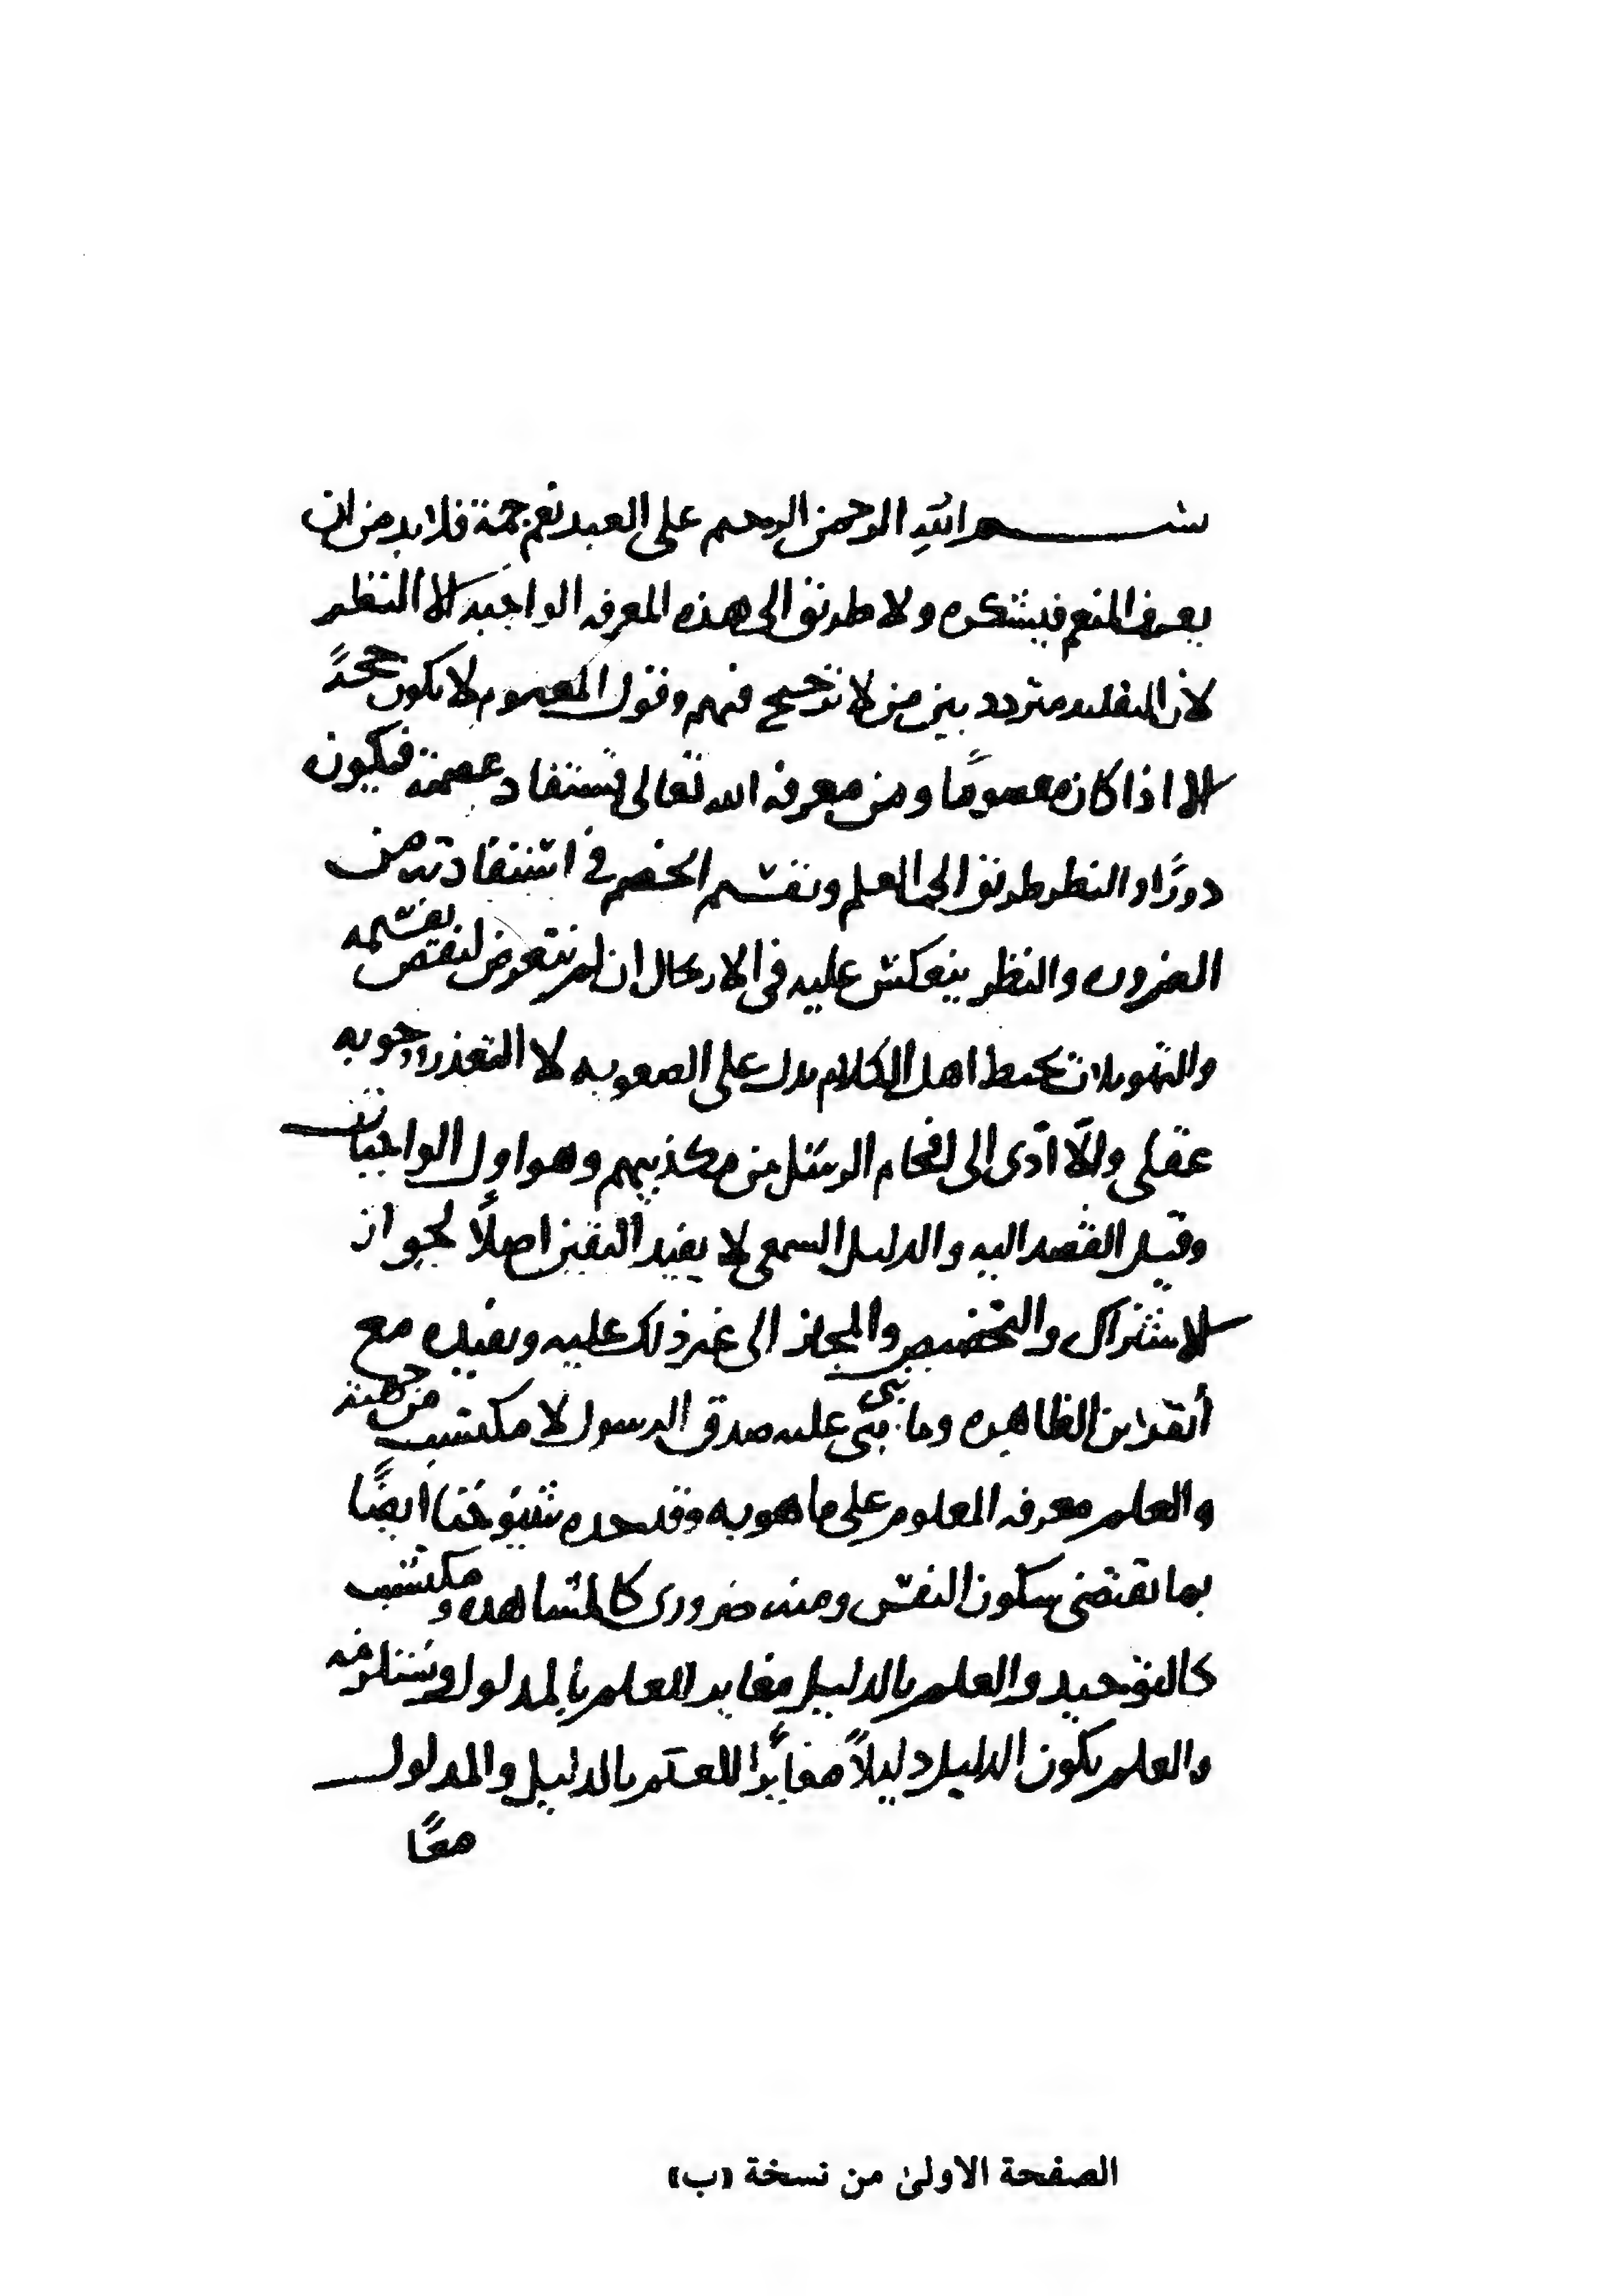 بسم الله الرحمن الرحيم على العبد نعم جمة فلا بد من ان
يعرف المنعم فيشكره ولا طريق الى هذه المعرفه الواجبه الا النظر
لان التقليد متردد بين من لا ترجيح فيهم وقول المعصوم لا يكون حجةً
الا اذا كان معصومًا ومن معرفه الله تعالى تستفاد عصمته فيكون
دورًا والنظر طريق الى العلم وتقسيم الخصم في استفادته من
الضروره والنظر ينعكس عليه في الابطال ان لم يتعرض لنقض تقسيمه
والتهويلات بخبط اهل الكلام يدل على الصعوبه لا التعذر ووجوبه
عقلي والّا ادّى الى افحام الرسل من مكذبيهم وهو اول الواجبات
وقيل القصد اليه والدليل السمعي لا يفيد اليقين اصلًا لجواز
الاشتراك والتخصيص والمجاز الى غير ذلك عليه ويفيده مع
القراين الظاهره وما يبنى بنى عليه صدق الرسول لا مكتسب من جهته
والعلم معرفه المعلوم على ما هو به وقد حده شيوخنا ايضًا
بما تقتضي سكون النفس ومنه ضروري كالمشاهده ومكتسب
كالتوحيد والعلم بالدليل مغاير للعلم بالمدلول ويستلزمه
والعلم بكون الدليل دليلًا مغايرًا للعلم بالدليل والمدلول
معًا
الصفحة الاولىٰ من نسخة (ب)